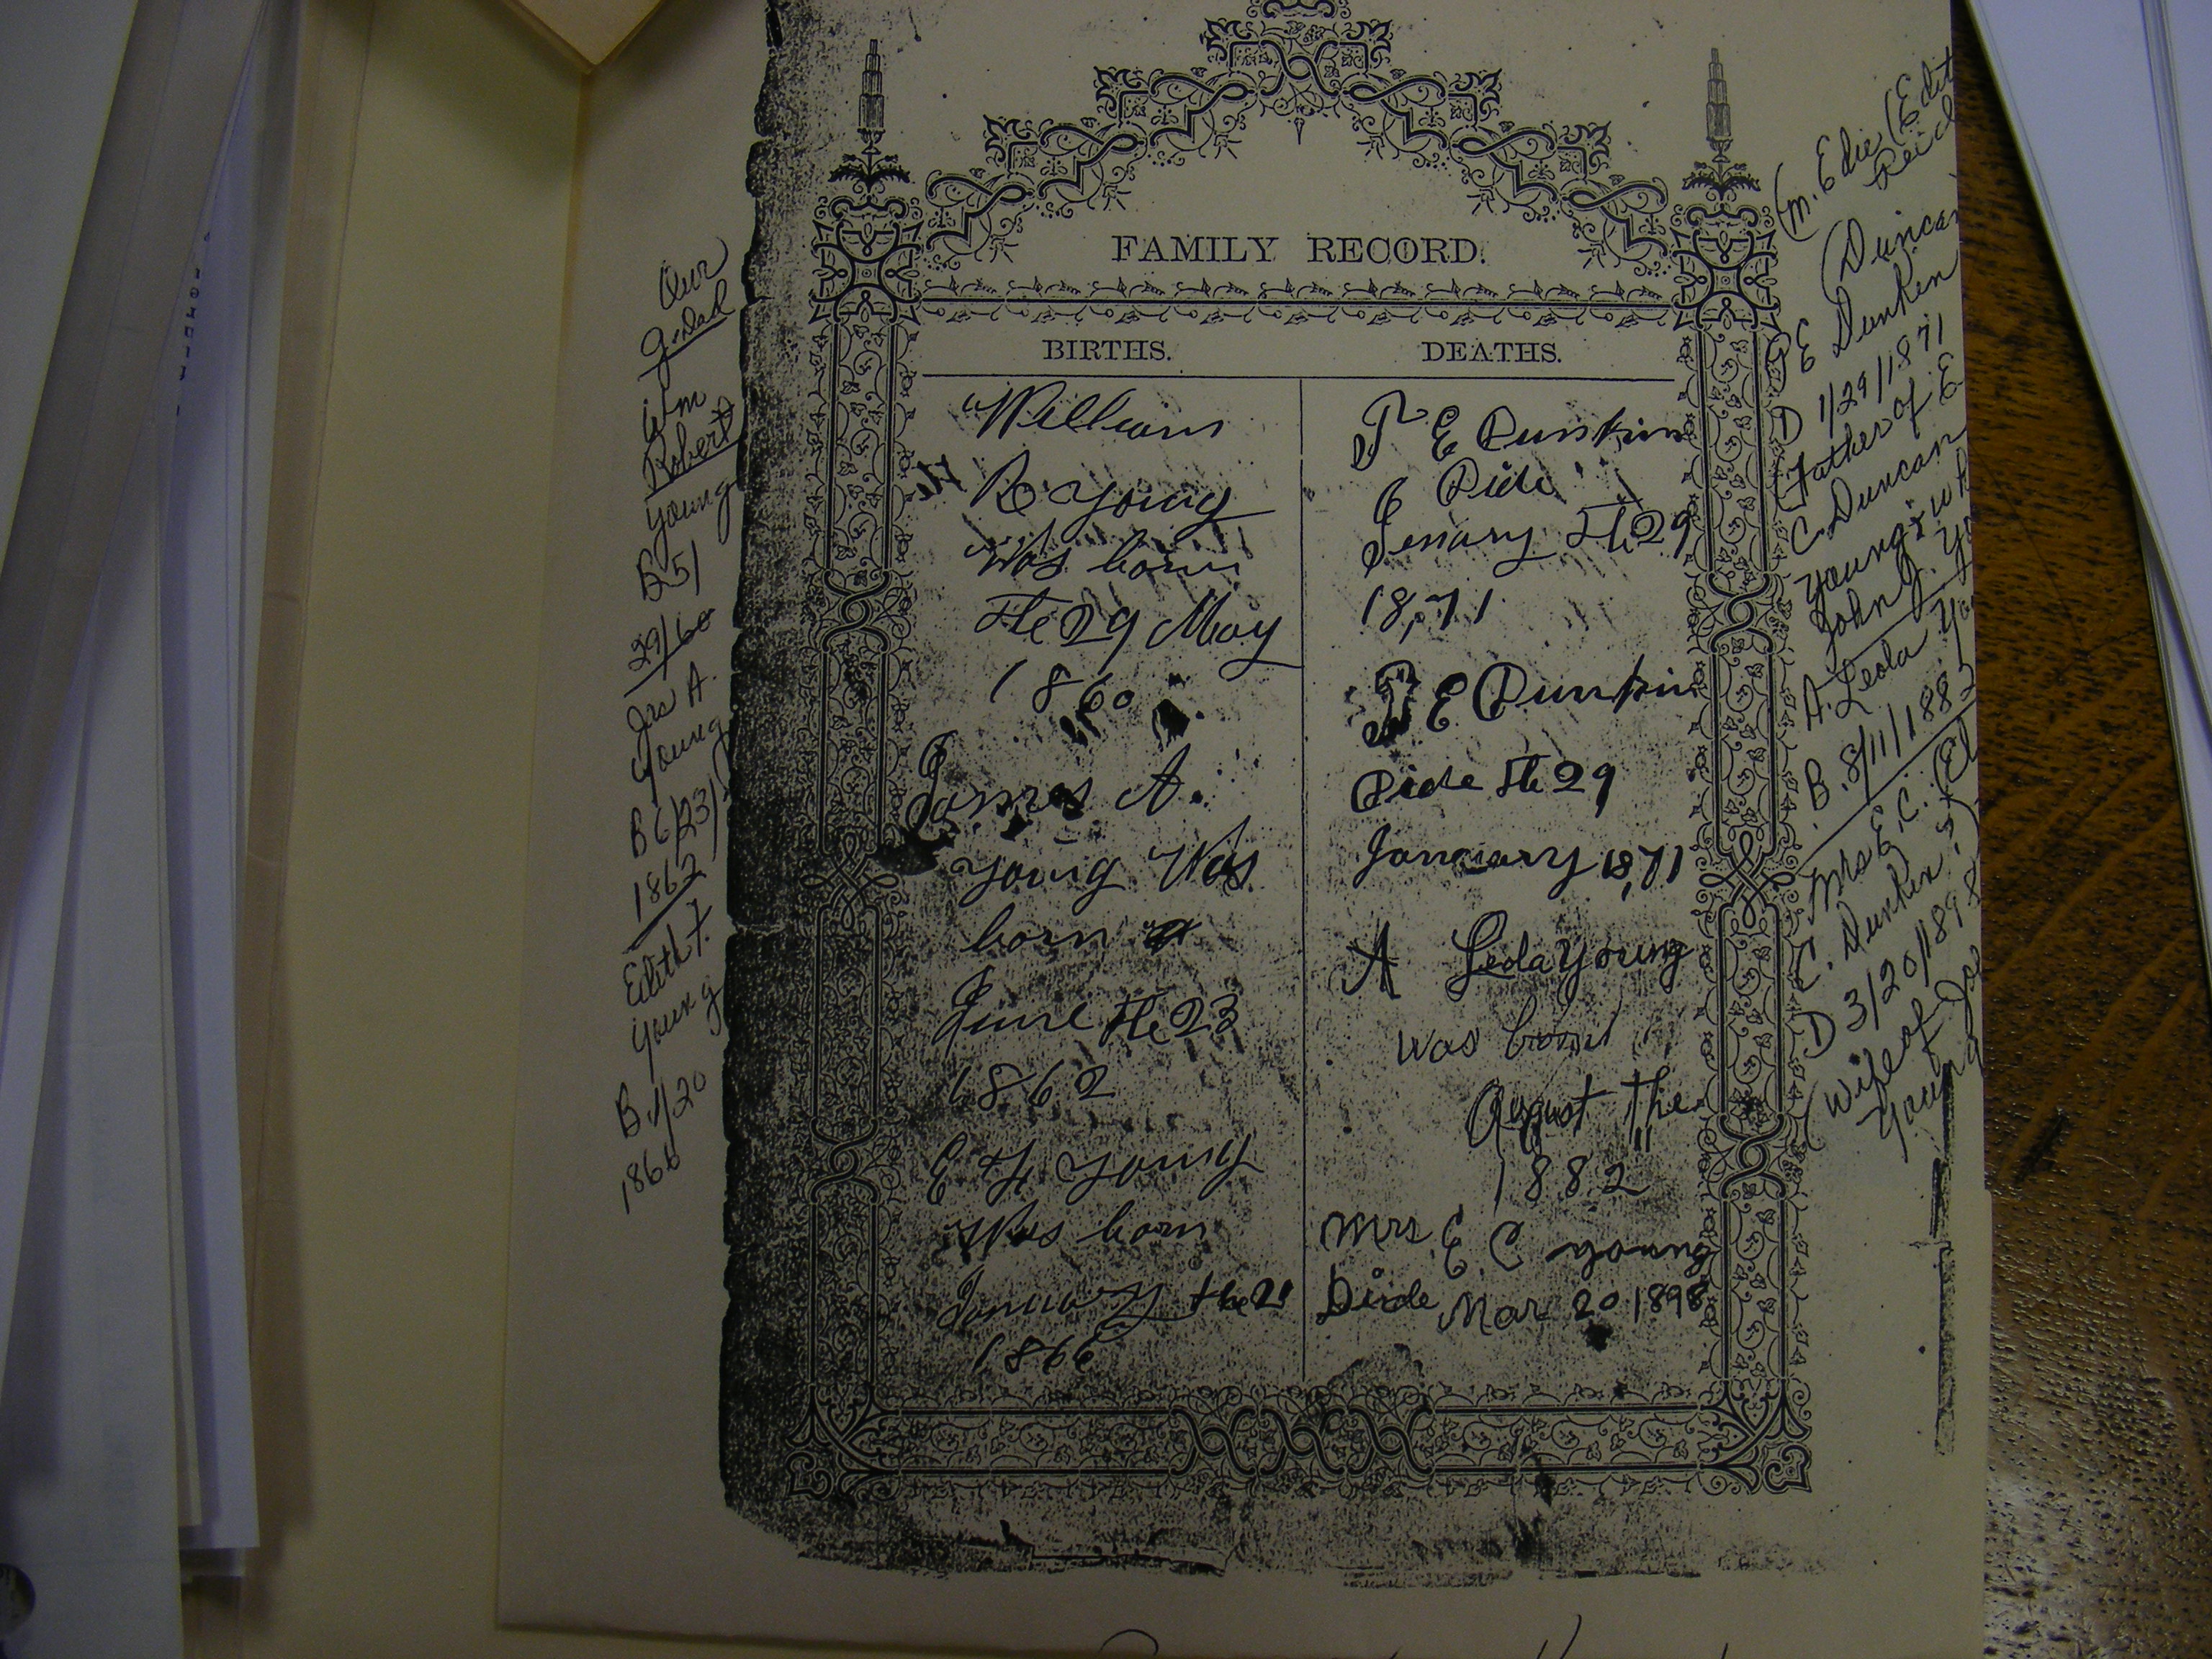 FAMILY RECORD.
BIRTHS.
William
R Young
Was born
the 29 May
1860
James A.
Young Was
born
June the 23
1862
E F Young
Was born
January the 20
1866
DEATHS.
E Dunkin
Dide
Jenary the 29
1871
E Dunkin
Dide the 29
January 1871
A Leola Young
was born
August the
11
1882
Mrs E C young
Diede Mar 20 1898
Our
G.dad
Wm
Robert
Young
B 5/
29/60
Jas A.
Young
B 6/23/
1862
Edith F.
Young
B. 1/20
1866
(m. Edie (Edit
Reid
(Duncan
E Dunken
D 1/29/1871
(Father of E
C. Duncan
Young & w
John J. Yo
A. Leola Yo
B. 8/11/1882
Mrs E.C. (El
C. Dunken?)
D 3/20/1898
(Wife of Joe
Young